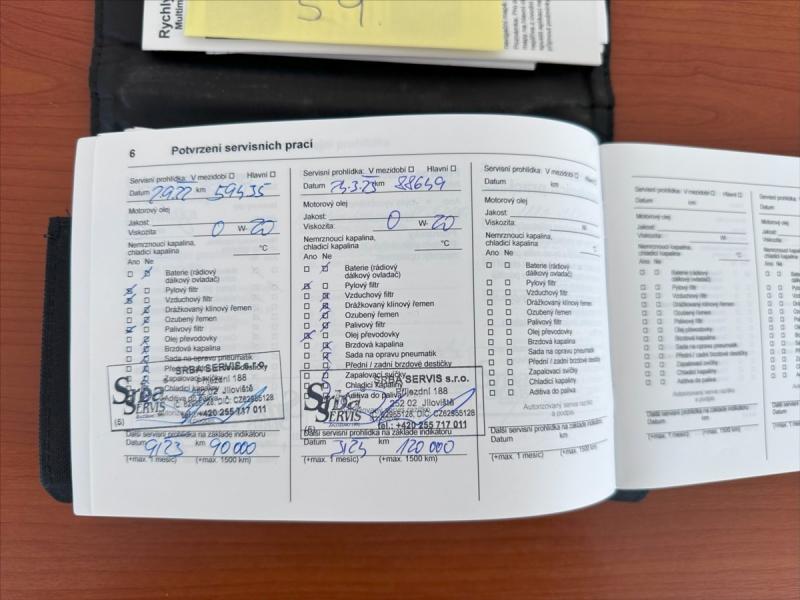 59.
Rychlý
Multim
6 Potvrzení servisních prací
Servisní prohlídka: V mezidobí Hlavní
Datum 29.22 km 59435
Motorový olej
Jakost:
Viskozita 0 W- 20
Nemrznoucí kapalina,
chladicí kapalina °C
Ano Ne
Baterie (rádiový
dálkový ovladač)
Pylový filtr
Vzduchový filtr
Drážkovaný klínový řemen
Ozubený řemen
Palivový filtr
Olej převodovky
Brzdová kapalina
Sada na opravu pneumatik
SRBA SERVIS s.r.o.
Příjezdní 188
Jíloviště
CZ62955128
+420 255 117 011
Srba
SERVIS
(5)
Další servisní prohlídka na základě indikátoru
Datum 9/23 km 90 000
(+max. 1 měsíc) (+max. 1500 km)
Servisní prohlídka: V mezidobí Hlavní
Datum 23 km 88649
Motorový olej
Jakost:
Viskozita 0 W- 20
Nemrznoucí kapalina,
chladicí kapalina °C
Ano Ne
Baterie (rádiový
dálkový ovladač)
Pylový filtr
Vzduchový filtr
Drážkovaný klínový řemen
Ozubený řemen
Palivový filtr
Olej převodovky
Brzdová kapalina
Sada na opravu pneumatik
Přední / zadní brzdové destičky
Zapalovací svíčky
Chladicí kapaliny
Aditiva do paliva
SRBA SERVIS s.r.o.
Příjezdní 188
252 02 Jíloviště
62955128, DIČ: CZ62955128
tel.: +420 255 717 011
Srba
SERVIS
Další servisní prohlídka na základě indikátoru
Datum 3/24 km 120 000
(+max. 1 měsíc) (+max. 1500 km)
Servisní prohlídka: V mezidobí Hlavní
Datum km
Motorový olej
Jakost:
Viskozita W-
Nemrznoucí kapalina,
chladicí kapalina °C
Ano Ne
Baterie (rádiový
dálkový ovladač)
Pylový filtr
Vzduchový filtr
Drážkovaný klínový řemen
Ozubený řemen
Palivový filtr
Olej převodovky
Brzdová kapalina
Sada na opravu pneumatik
Přední / zadní brzdové destičky
Zapalovací svíčky
Chladicí kapaliny
Aditiva do paliva
Autorizovaný servis razítko
a podpis
Další servisní prohlídka na základě indikátoru
Datum km
(+max. 1 měsíc) (+max. 1500 km)
Servisní prohlídka: V mezidobí Hlavní
Datum km
Motorový olej
Jakost:
Viskozita W-
Nemrznoucí kapalina,
chladicí kapalina °C
Ano Ne
Baterie (rádiový
dálkový ovladač)
Pylový filtr
Vzduchový filtr
Drážkovaný klínový řemen
Ozubený řemen
Palivový filtr
Olej převodovky
Brzdová kapalina
Sada na opravu pneumatik
Přední / zadní brzdové destičky
Zapalovací svíčky
Chladicí kapaliny
Aditiva do paliva
Autorizovaný servis razítko
a podpis
Další servisní prohlídka na základě indikátoru
Datum km
(+max. 1 měsíc) (+max. 1500 km)